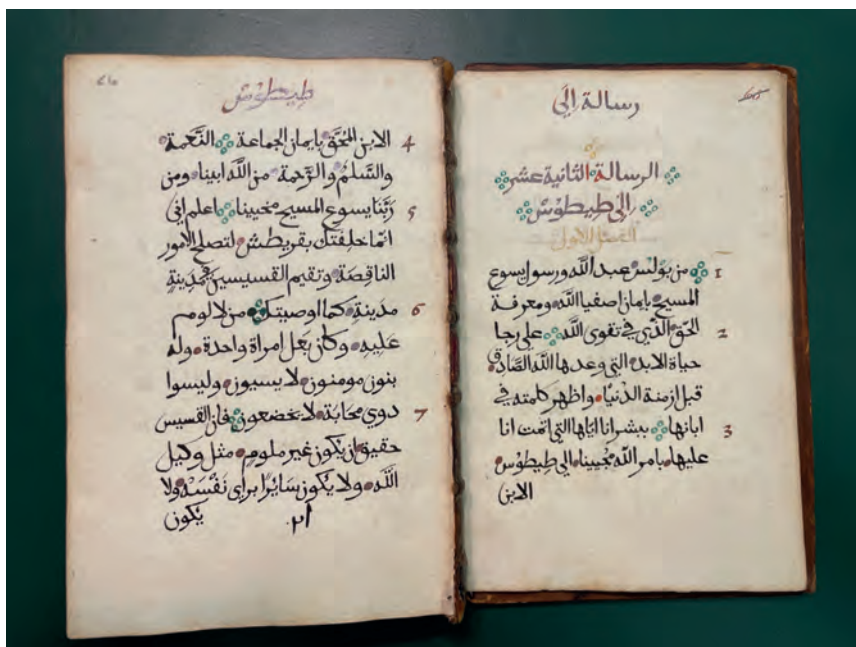 رسالة إلَى
الرسالة الثانية عشر
إلى طِيطوْسْ
الفصل الاول
1 من بَوْلسْ عبد اللَّه ورسول يسوع
المسيح بإيمان اصفيا اللَّه ومعرفة
2 الحَق الَّذِي في تقوى اللَّه على رجا
حياة الابد التي وعد ها اللَّه الصَّادق
قبل ازمنة الدنيا واظهر كلمته في
3 ابانها ببشرانا اياها التي اتمت انا
عليها بامر اللَّه مُحيينا الى طِيطوْس
الابن
طِيطوْسْ
4 الابن المُحَق بإيمان الجماعة النَّعمة
والسَّلمُ والرَّحمة من اللَّه ابينا ومن
5 رَبّنا يسوع المسيح محيينا اعلم اني
انما خلفتك بقريطش لتصلح الأمور
الناقِصَة وتقيم القسيسين في مَدِينةٍ
6 مدَينةِ كما اوصيتك من لا لوم
عَليهِ وكان بَعل امراة واحدة وله
بنون مومنون لا يسبون وليسوا
7 دوي محَابة لا يخضعون فان القسيس
حقيق ان يكون غير ملومٍ مثل وكيل
اللَّه ولا يَكون سَايرًا براي نَفْسَهْ ولا
يكون